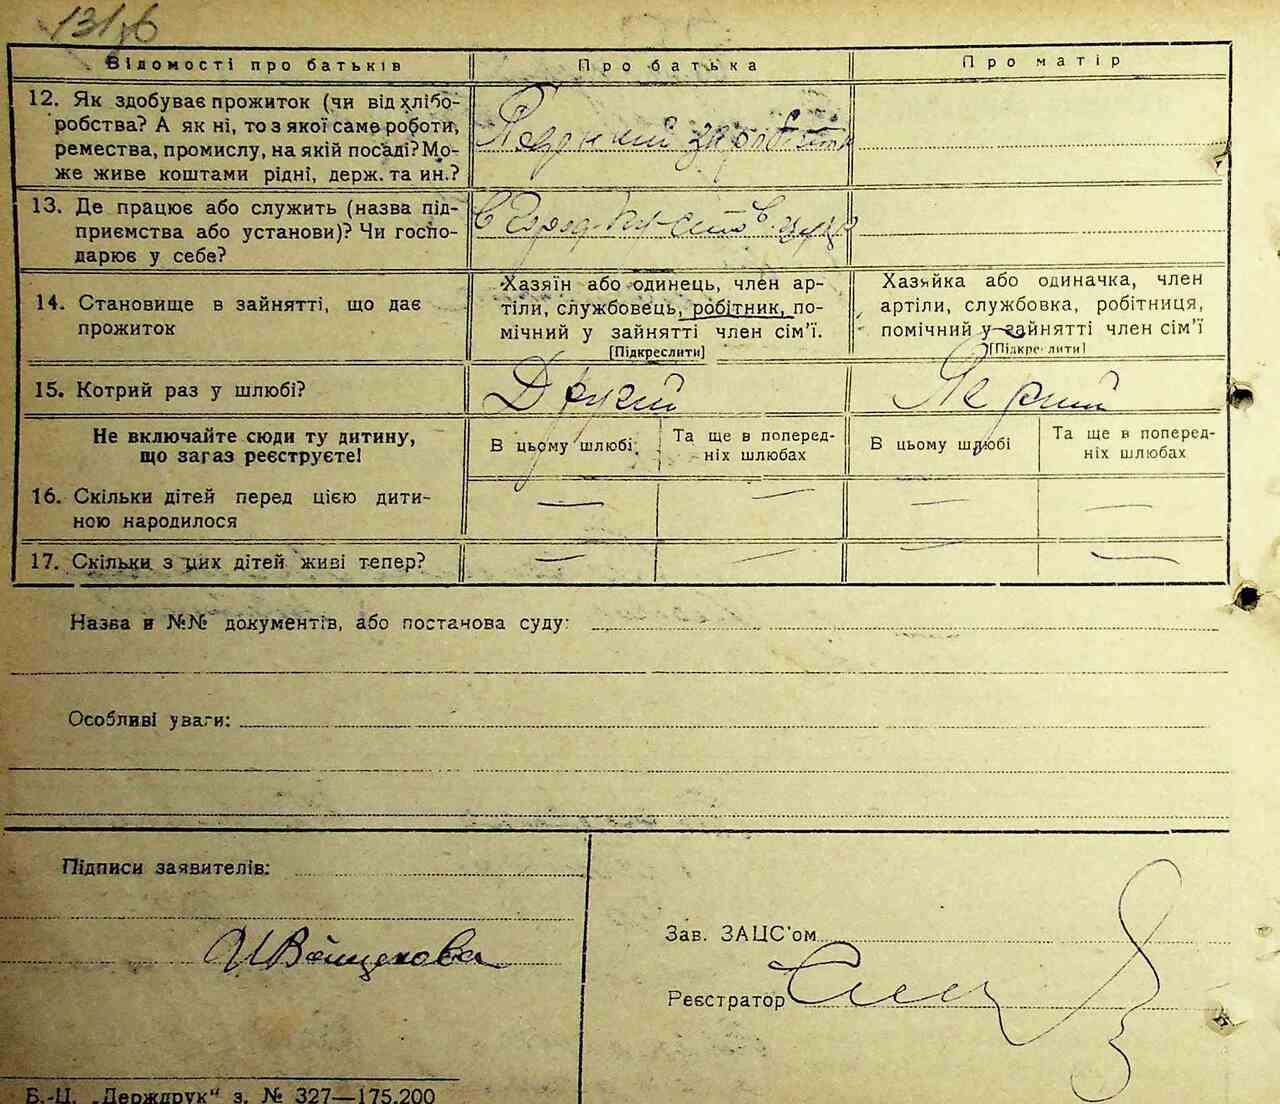 Відомості про батьків
Про батька
Про матір
12. Як здобуває прожиток (чи від хлібо-
робства? А як ні, то з якої саме роботи,
ремества, промислу, на якій посаді? Мо-
же живе коштами рідні, держ. та ин.?
13. Де працює або служить (назва під-
приємства або установи)? Чи госпо-
дарює у себе?
14. Становище в зайнятті, що дає
прожиток
Хазяїн або одинець, член ар-
тіли, службовець, робітник, по-
мічний у зайнятті член сім'ї.
[Підкреслити]
Хазяйка або одиначка, член
артіли, службовка, робітниця,
помічний у зайнятті член сім'ї
[Підкреслити]
15. Котрий раз у шлюбі?
Другий
Первий
Не включайте сюди ту дитину,
що загаз реєструєте!
В цьому шлюбі
Та ще в поперед-
ніх шлюбах
В цьому шлюбі
Та ще в поперед-
ніх шлюбах
16. Скільки дітей перед цією дити-
ною народилося
— — — —
17. Скільки з цих дітей живі тепер?
— — — —
Назва и №№ документів, або постанова суду:
Особливі уваги:
Підписи заявителів:
Зав. ЗАЦС'ом
Реєстратор
Б.-Ц. „Держдрук“ з. № 327—175.200